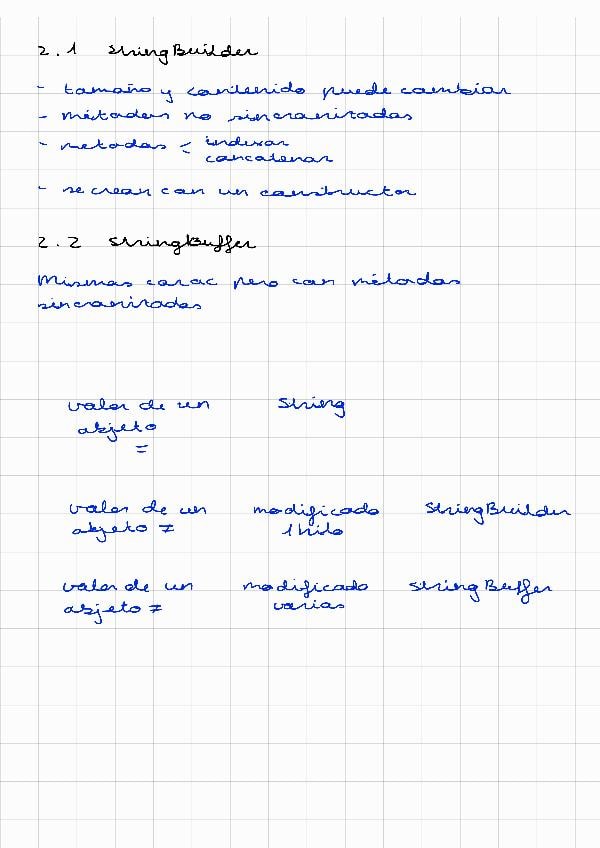 2.1 StringBuilder
- tamaño y contenido puede cambiar
- métodos no sincronizados
- metodos < indexar
concatenar
- se crean con un constructor
2.2 StringBuffer
Mismas carac pero con métodos
sincronizados
valor de un String
objeto
=
valor de un modificado StringBuilder
objeto ≠ 1 hilo
valor de un modificado StringBuffer
objeto ≠ varios